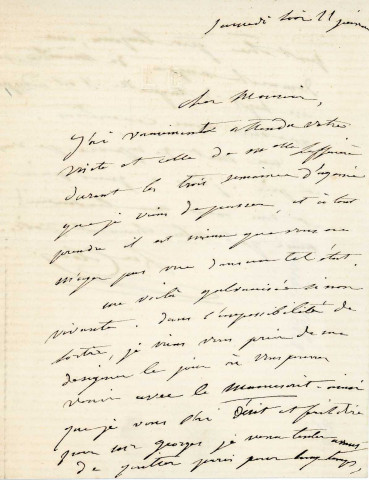 Samedi soir 11
Cher Monsieur,
J'ai vainement attendu votre
visite et celle de Melle
durant les trois semaines d'agonie
que je viens de passer, et à tout
prendre il est mieux que vous ne
m'ayez pas vue dans un tel état.
me voilà galvanisée sinon
vivante. dans l'impossibilité de
sortir, je viens vous prier de me
designer le jour où vous pouvez
venir avec le manuscrit - ainsi
que je vous l'ai écrit et fait dire
par mr georges je veux tenter
de quitter paris pour longtemps,